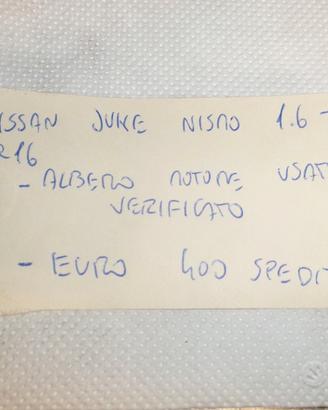 ISSAN JUKE NISMO 1.6 -
R16
- ALBERO MOTORE USAT
VERIFICATO
- EURO 400 SPEDI